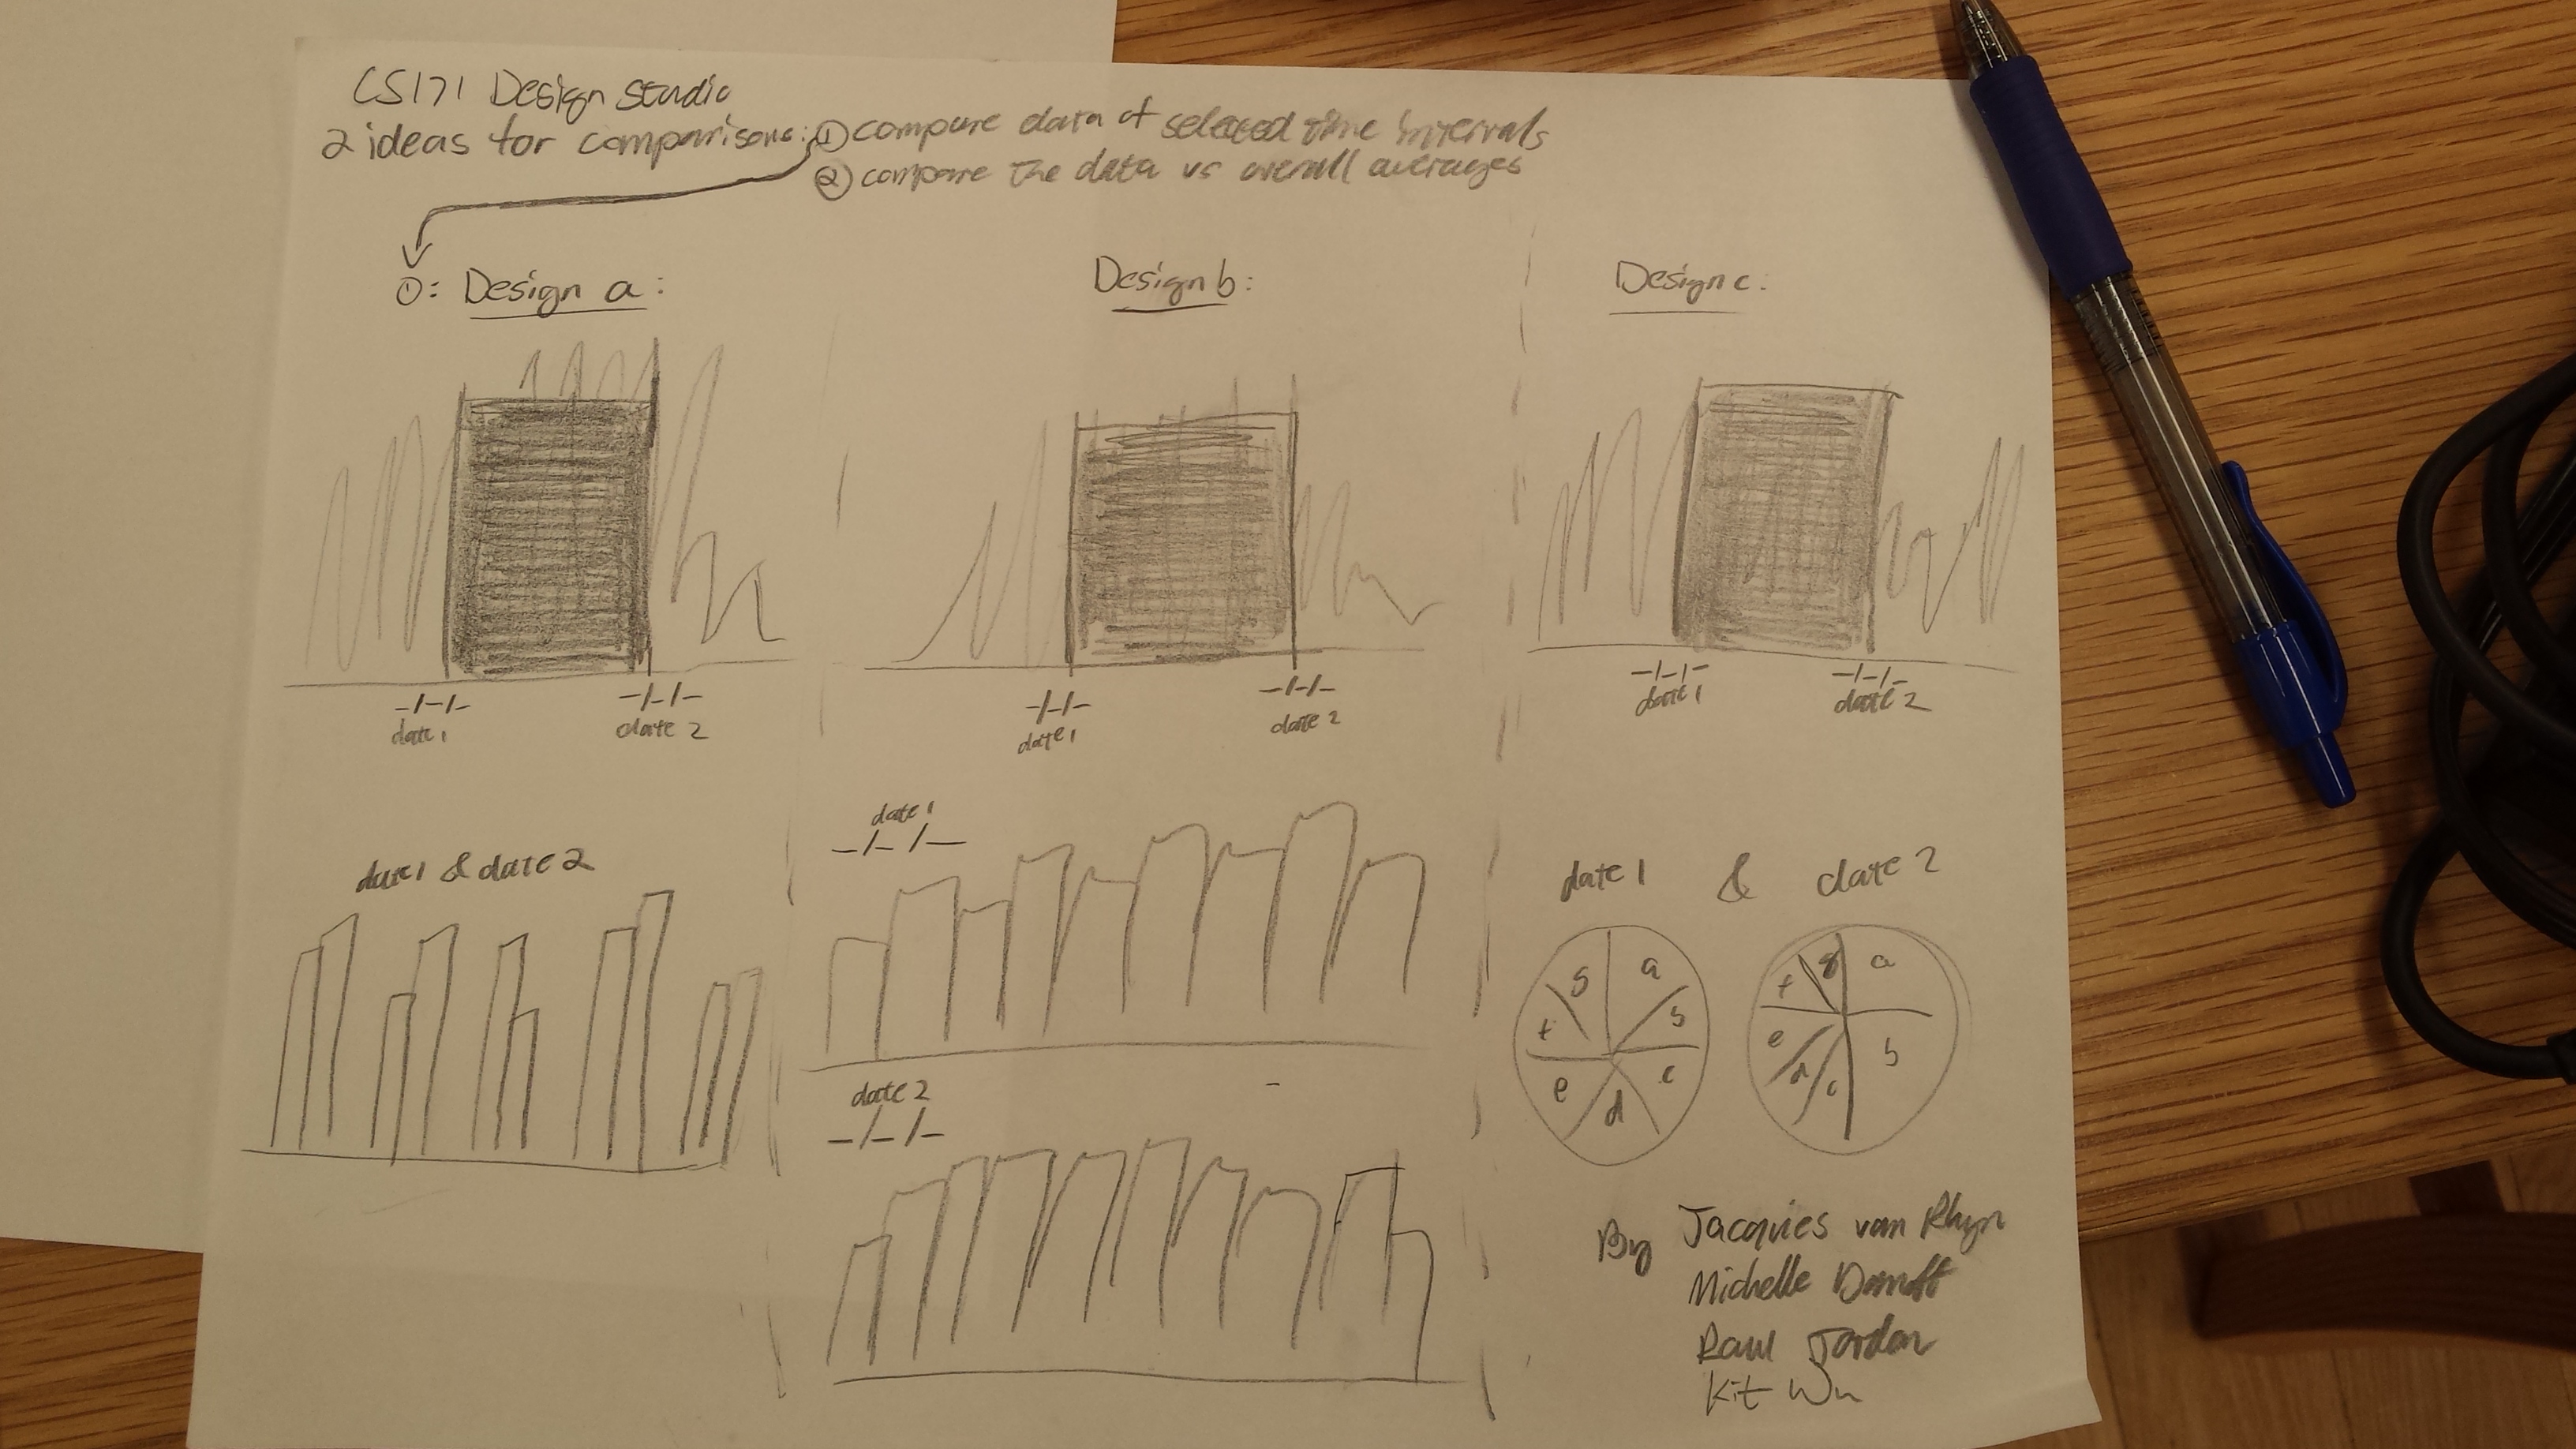 CS171 Design Studio
2 ideas for comparisons: ① compare data of selected time intervals
② compare the data vs overall averages
①: Design a:
Design b:
Design c:
-/-/-
date 1
-/-/-
date 2
-/-/-
date 1
-/-/-
date 2
-/-/-
date 1
-/-/-
date 2
date 1 & date 2
date 1
-/-/-
date 2
-/-/-
date 1 & date 2
g a
f b
e d c
g a
f
e b
d c
By Jacquies van Rhyn
Michelle
Raul Jordan
Kit Wu